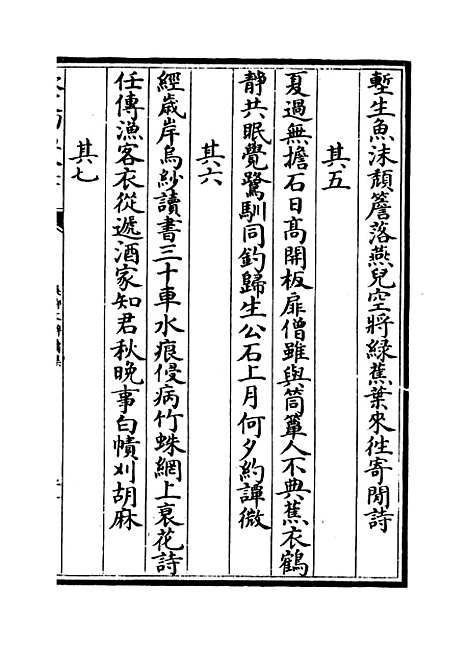 塹生魚沫頹簷落燕兒空將緑蕉葉來往寄閒詩
其五
夏過無擔石日高開板扉僧雖與筒簞人不典蕉衣鶴
静共眠覺鷺馴同釣歸生公石上月何夕約譚微
其六
經歳岸烏紗讀書三十車水痕侵病竹蛛網上衰花詩
任傳漁客衣從遞酒家知君秋晚事白幘刈胡麻
其七